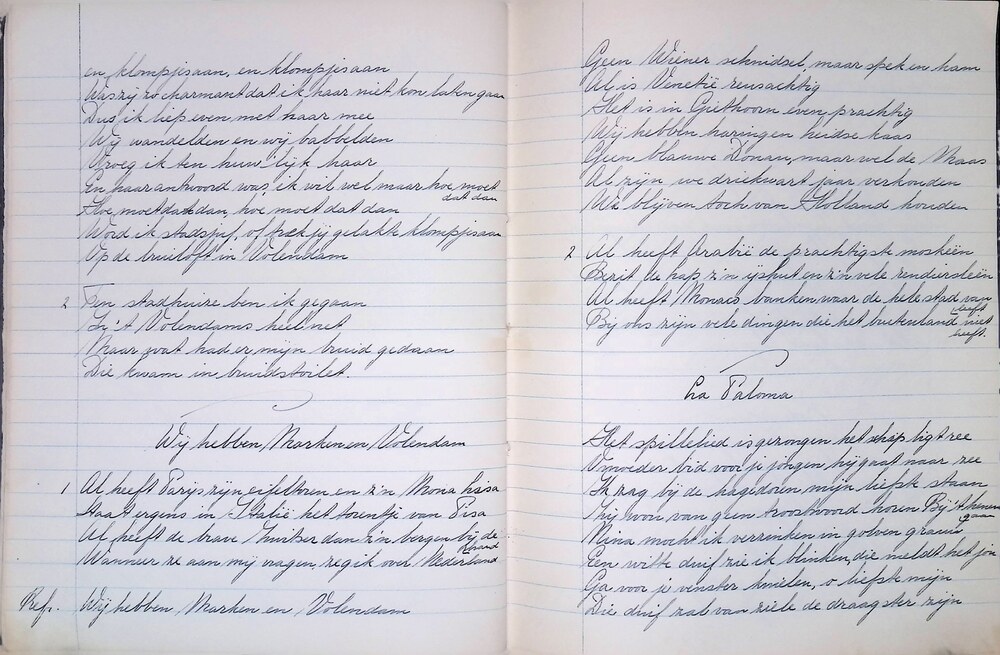 en klompjesaan, en klompjesaan
Was zij zo charmant dat ik haar niet kon laten gaan
Dus ik liep even met haar mee
Wij wandelden en wij babbelden
Vroeg ik ten huw'lijk haar
En haar antwoord was, ik wil wel maar hoe moet dat dan
Hoe moet dat dan, hoe moet dat dan
Word ik stadsjuf, of trek jij gelakte klompjesaan
Op de bruiloft in Volendam
2 Ten stadhuize ben ik gegaan
In 't Volendams heel net
Maar wat had er mijn bruid gedaan
Die kwam in bruidstoilet.
Wij hebben Marken en Volendam
1 Al heeft Parijs zijn eifeltoren en z'n Mona Lisa
Staat ergens in Italië het torentje van Pisa
Al heeft de brave Zwitser dan z'n bergen bij de
Wanneer ze aan mij vragen zeg ik over Nederland
Ref. Wij hebben Marken en Volendam
Geen Wiener schnidsel, maar spek en ham
Al is Venetië reusachtig
Het is in Giethoorn even prachtig
Wij hebben haringen leidse kaas
Geen blauwe Donau, maar wel de Maas
Al zijn we driekwart jaar verkouden
We blijven toch van Holland houden
2 Al heeft Arabië de prachtigste moskeën
Berit de lap z'n ijshut en z'n vele rendiersleën
Al heeft Monaco banken waar de hele stad van leeft
Bij ons zijn vele dingen die het buitenland niet heeft.
La Paloma
Het spillelied is gezongen het schip ligt ree
O moeder bid voor je jongen hij gaat naar zee
Ik zag bij de hagedoren mijn liefste staan
Zij wou van geen troostwoord horen Bij 't henengaan
Nina mocht ik verzinken in golven grauw
Een witte duif zie ik blinken, die meldt het jou
Ga voor je venster knielen, o liefste mijn
Die duif zal van ziele de draagster zijn